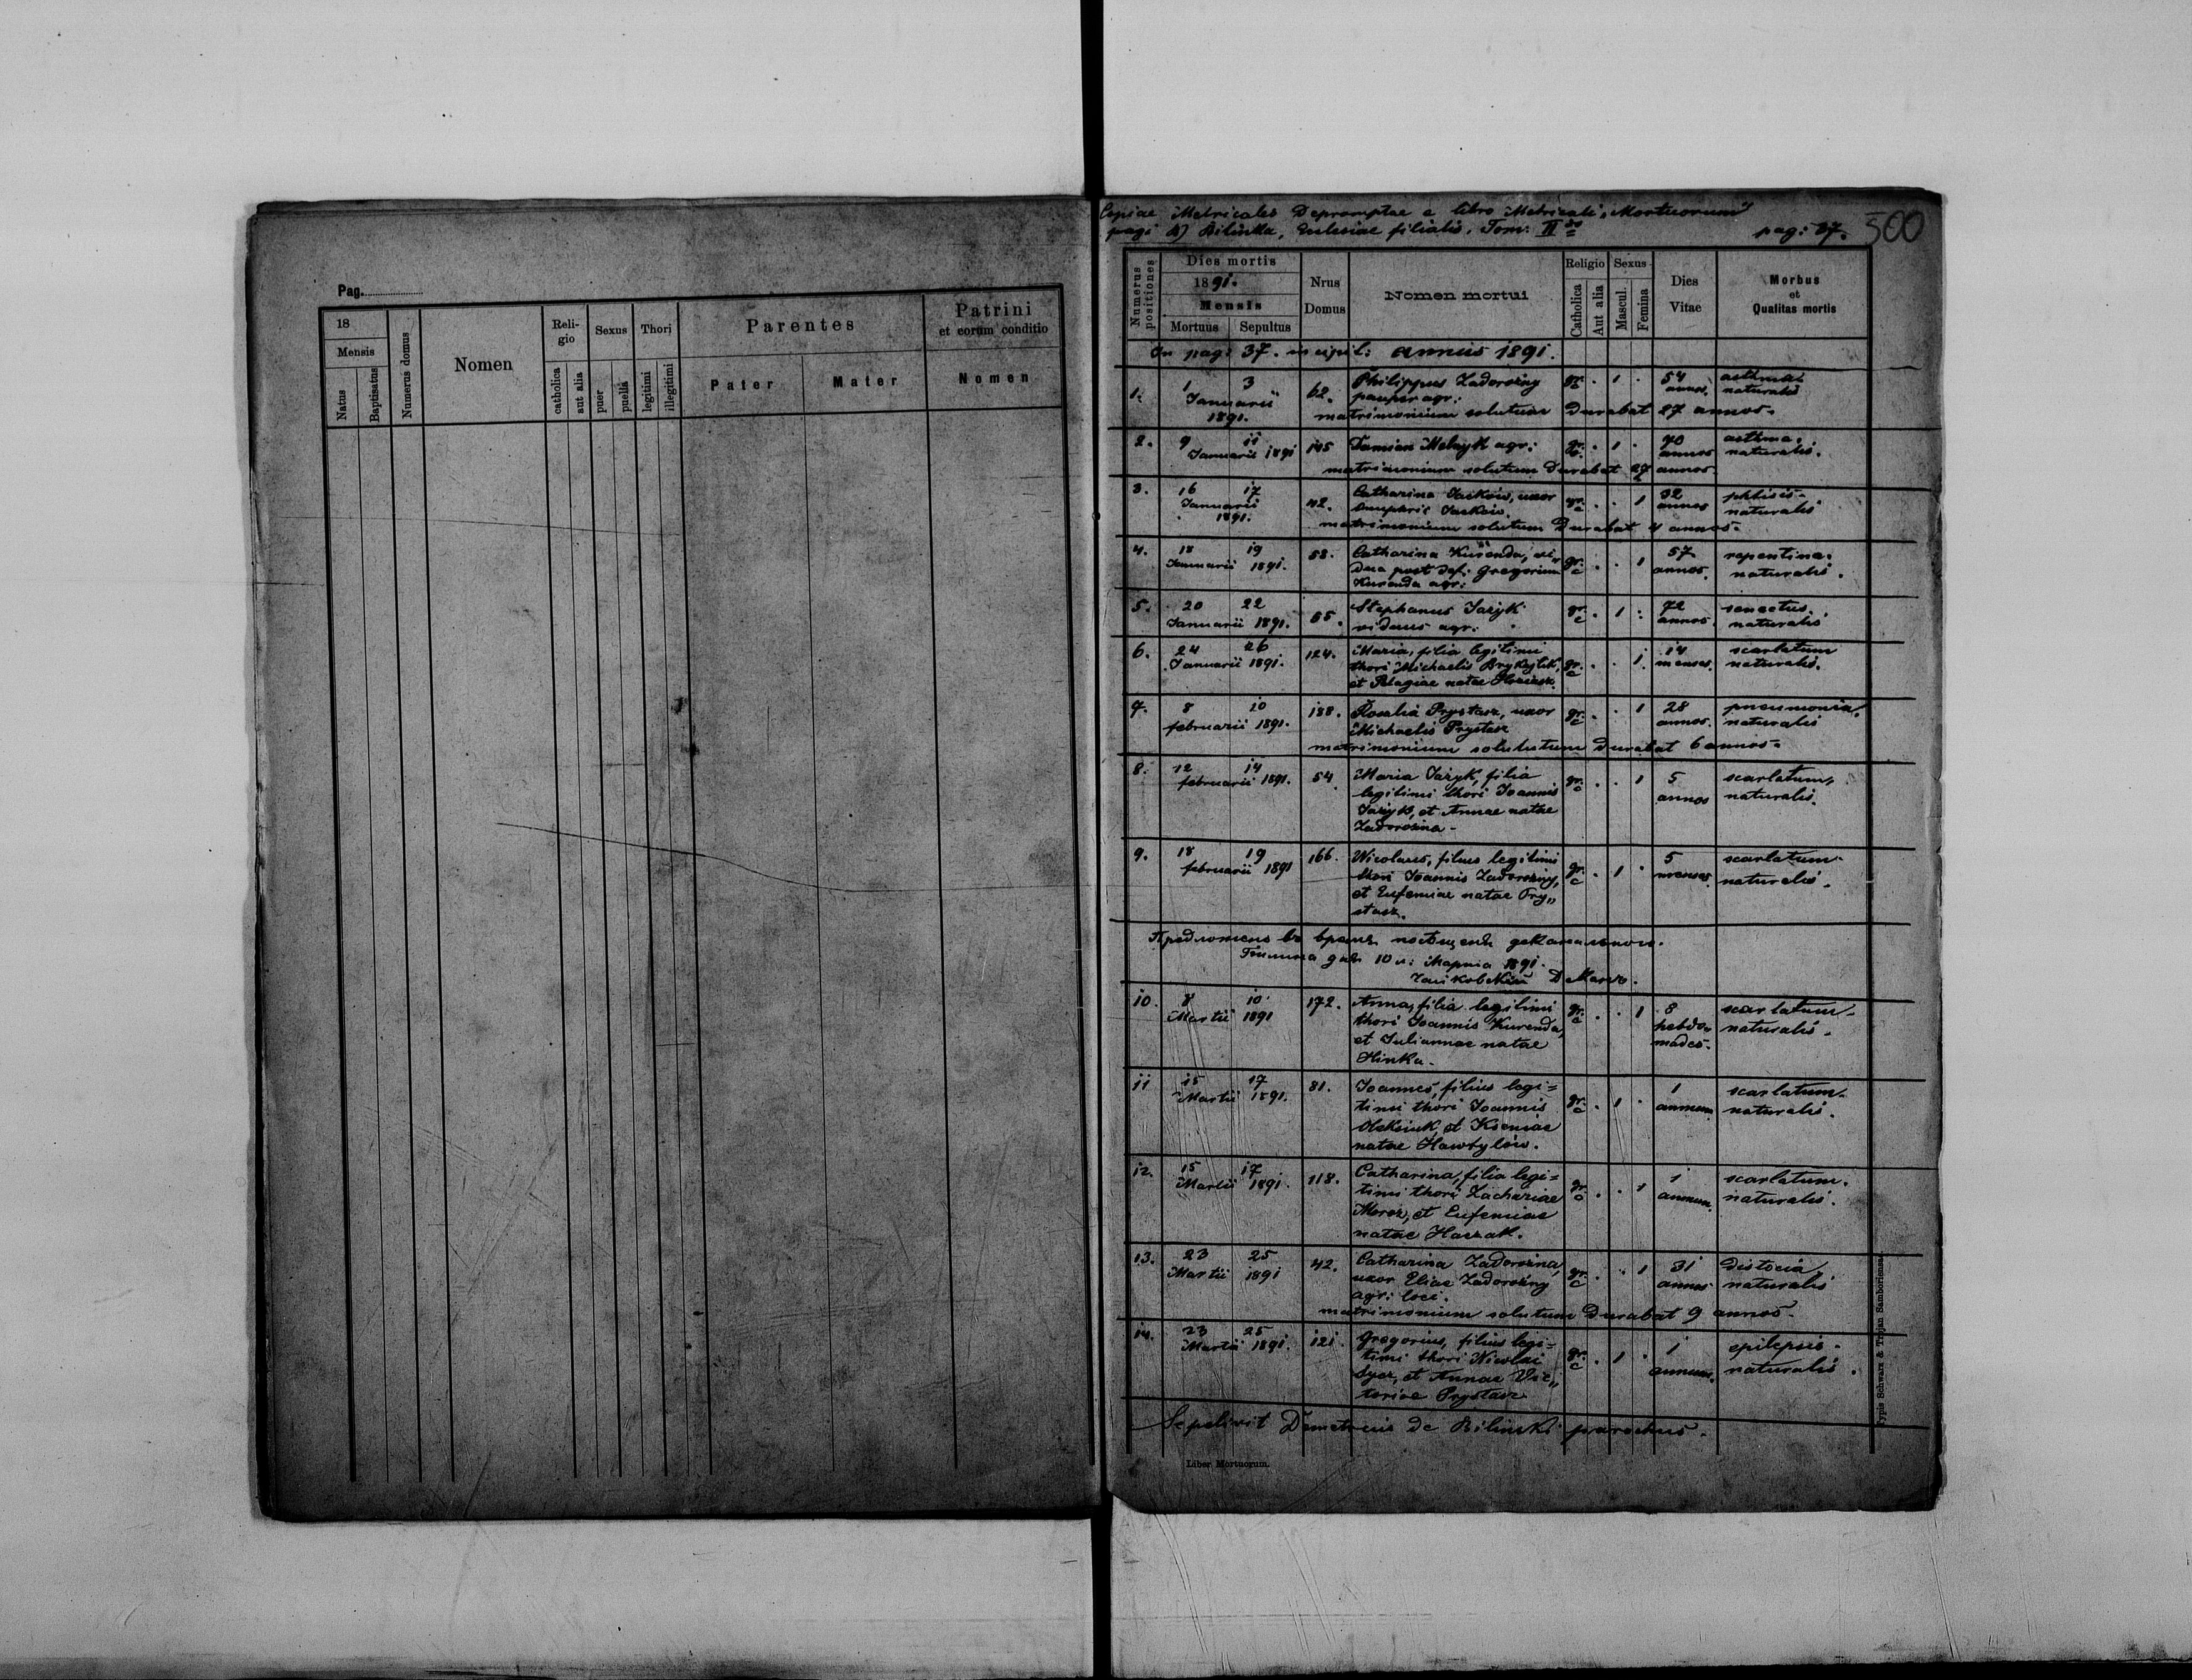 Pag.
18
Mensis
Natus
Baptisatus
Numerus domus
Nomen
Reli-
gio
catholica
aut alia
Sexus
puer
puella
Thori
legitimi
illegitimi
Parentes
Pater
Mater
Patrini
et eorum conditio
Nomen
Copiae Metricales Depromptae e libro Metricali "Mortuorum"
pagi Bilinka, Ecclesiae filialis, Tom: II
pag: 37.
500
Numerus
positiones
Dies mortis
1891.
Mensis
Mortuus
Sepultus
Nrus
Domus
Nomen mortui
Religio
Catholica
Aut alia
Sexus
Mascul.
Femina
Dies
Vitae
Morbus
et
Qualitas mortis
In pag: 37. incipit: annus 1891.
1. 1 3 62. Philippus Zadorożny gr. c 1 54 asthma
Januarii pauper agr: annos. naturalis
1891. matrimonium solutum Durabat 27 annos.
2. 9 11 145 Damian Melnyk agr: gr. c. 1 70 asthma.
Januarii 1891 annos naturalis.
matrimonium solutum Durabat 27 annos.
3. 16 17 42. Catharina Jacków, uxor gr. c 1 32 phtisis.
Januarii Jacków. annos naturalis
1891. matrimonium solutum Durabat 4 annos.
4. 18 19 58. Catharina Kurenda, vi„ gr. c 1 57 repentina.
Januarii 1891. dua post def: Gregorium annos. naturalis.
Kurenda agr:
5. 20 22 65. Stephanus Jażyk gr. c 1 72 senectus.
Januarii 1891. viduus agr: annos naturalis
6. 24 26 124. Maria, filia legitimi gr. c 1 14 scarlatum
Januarii 1891. thori Michaelis menses. naturalis.
et Pelagiae natae
7. 8 10 188. Rosalia Prystasz, uxor gr. c 1 28 pneumonia.
februarii 1891. Michaelis Prystasz annos. naturalis
matrimonium solututum Durabat 6 annos.
8. 12 14 54. Maria Jażyk, filia gr. c 1 5 scarlatum,
februarii 1891. legitimi thori Joannis annos naturalis.
Jażyk, et Annae natae
Zadorożna.
9. 18 19 166. Nicolaus, filius legitimi gr. c 1 5 scarlatum.
februarii 1891 thori Joannis Zadorożny, menses. naturalis.
et Eufemiae natae Pry„
stasz.
10 м: Марта 1891.
10. 8 10 172. Anna, filia legitimi gr. c 1 8 scarlatum.
Martii 1891 thori Joannis Kurenda, hebdo„ naturalis.
et Juliannae natae mades.
Hinka.
11 15 17 81. Joannes, filius legi= gr. c 1 1 scarlatum.
Martii 1891. timi thori Joannis annum naturalis.
Oleksiuk, et Kseniae
natae Hawryłów.
12. 15 17 118. Catharina, filia legi= gr. c 1 1 scarlatum.
Martii 1891. timi thori Zachariae annum. naturalis.
Moroz, et Eufemiae
natae Haszak.
13. 23 25 42. Catharina Zadorożna, gr. c 1 31 distocia
Martii 1891 uxor Eliae Zadorożny annos naturalis
agr: loci.
matrimonium solutum Durabat 9 annos.
14. 23 25 121. Gregorius, filius legi= gr. c 1 1 epilepsis.
Martii 1891. timi thori Nicolai annum. naturalis.
et Annae Vic„
toriae Prystasz
Sepelivit Demetrius de Bilinski parochus.
Liber Mortuorum.
Typis Schwarz & Trojan Samboriensi.